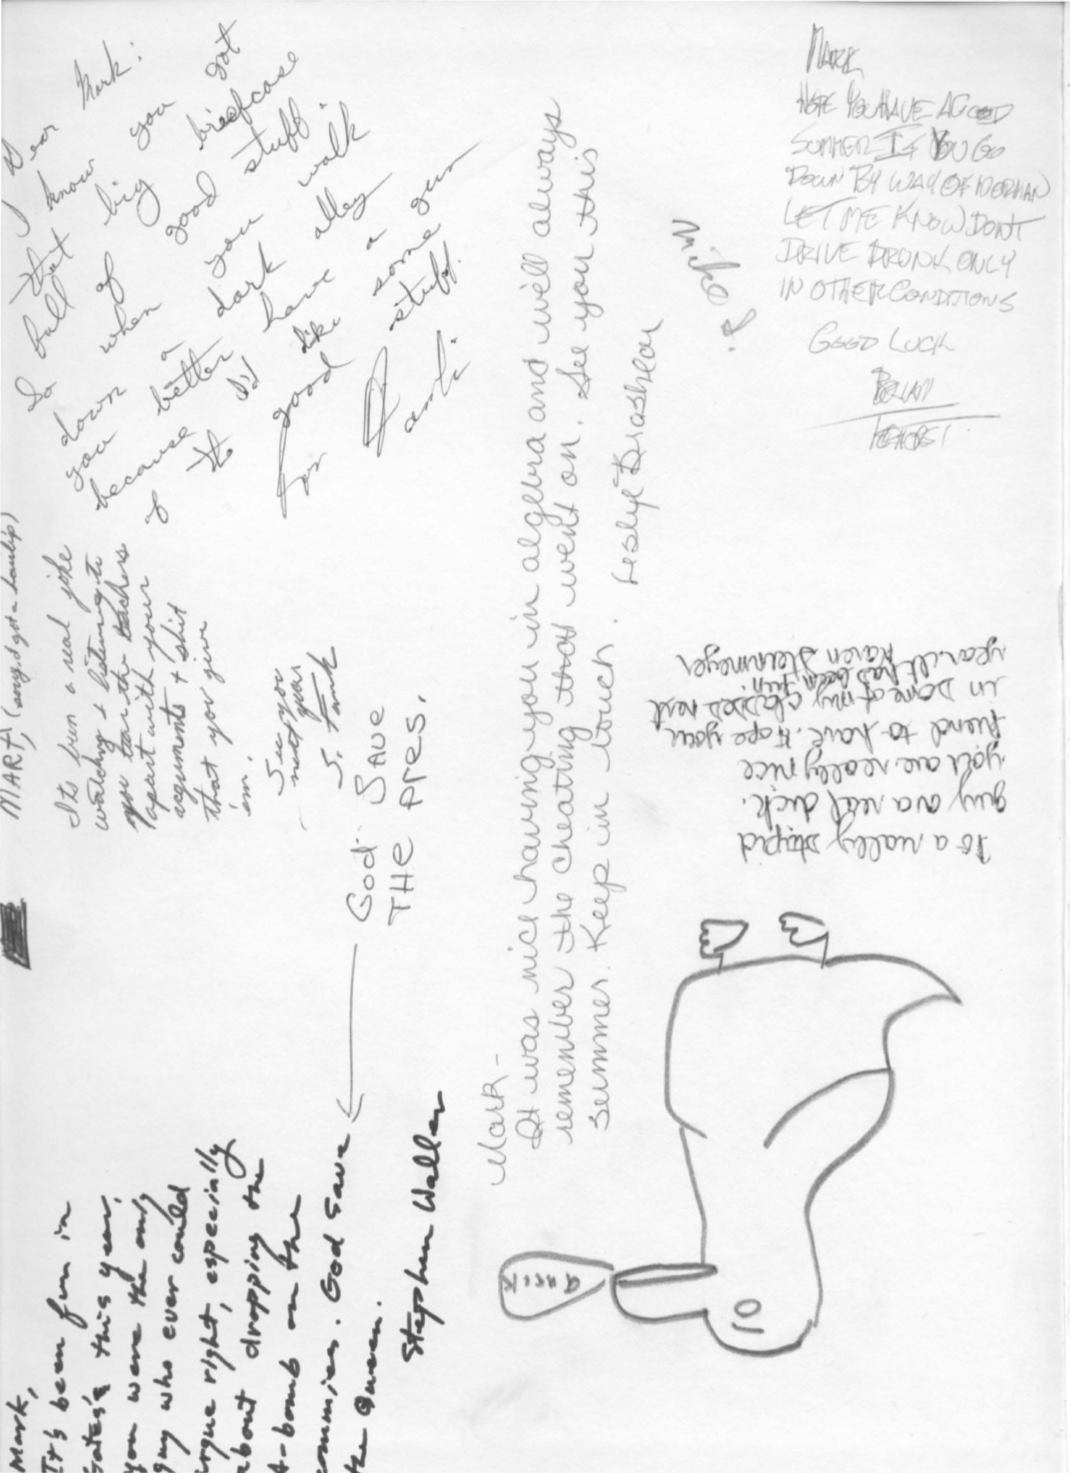 Dear Mark:
I know you got
that big briefcase
full of good stuff.
So when you walk
down a dark alley
you better have a gun
because I'd like some
of the good stuff.
For
MARK
HOPE YOU HAVE A GOOD
SUMMER IF YOU GO
DOWN BY WAY OF
LET ME KNOW DONT
DRIVE DRUNK ONLY
IN OTHER CONDITIONS
GOOD LUCK
BRIAN
MARK,
Its been a real joke
watching & listening to
you tear the teachers
apart with your
arguments & shit
that you give
em.
See you
next year
S.
God SAVE
THE Pres.
Mark -
It was nice having you in algebra and will always
remember the cheating that went on. See you this
summer. Keep in touch.
Leslye Brashear
To a really stupid
guy ora real dick.
you are really nice
friend to have. Hope your
in some of my classes next
year. It has been fun
Karen
Mark,
It's been fun in
Gates's this year,
you were the only
guy who ever could
argue right, especially
about dropping the
A-bomb on the
commies. God save
the Queen.
Stephen Waller
QUACK